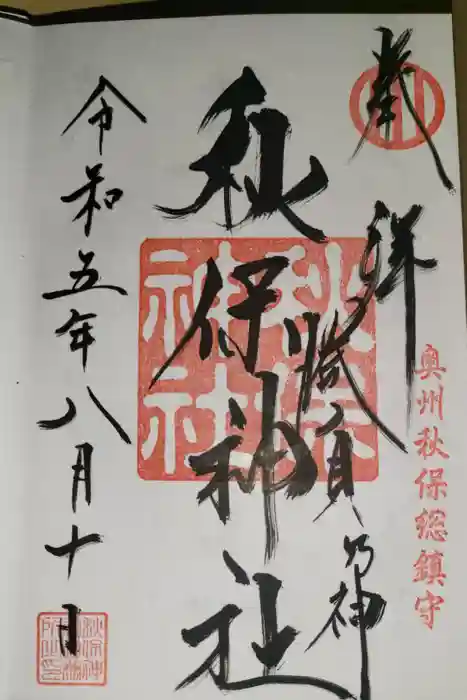 奉拝
奥州秋保総鎮守
勝負の神
秋保神社
秋保神社
令和五年八月十日